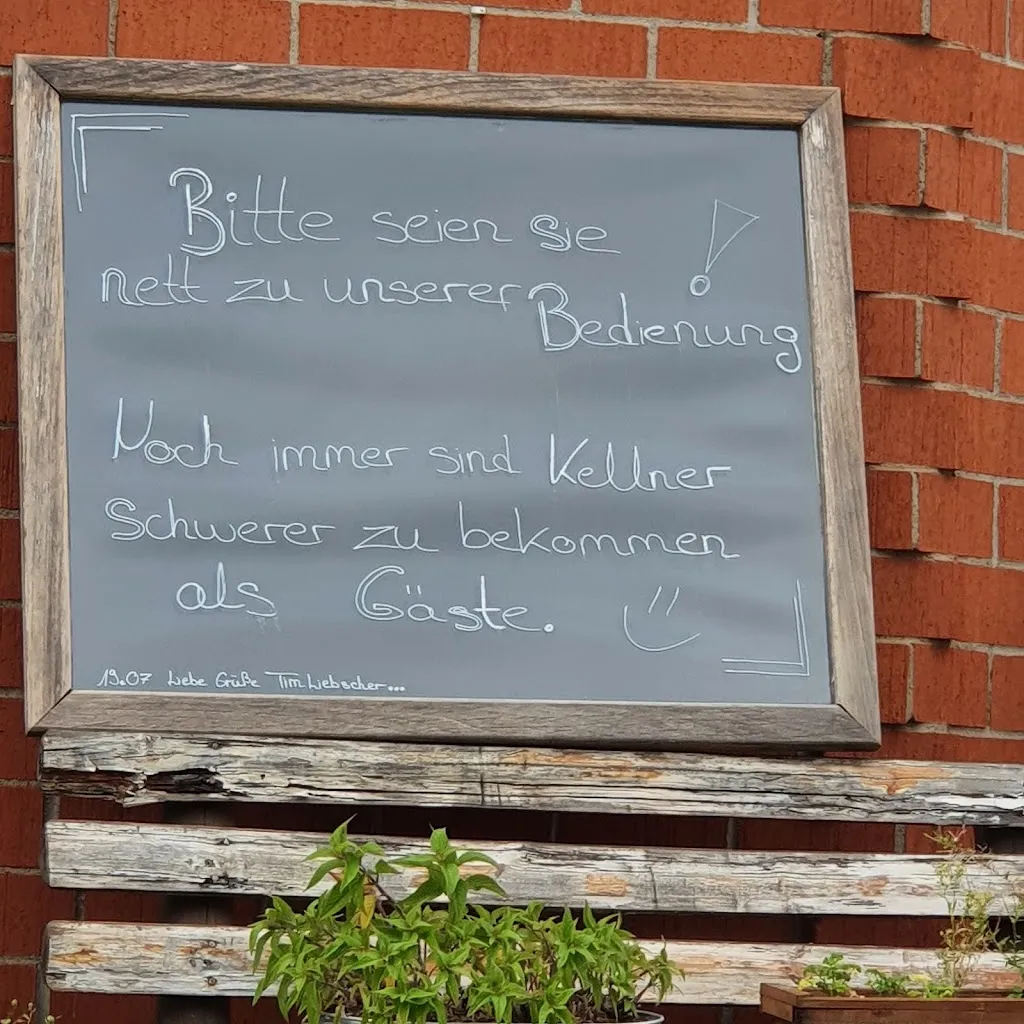 Bitte seien Sie
nett zu unserer
Bedienung!
Noch immer sind Kellner
Schwerer zu bekommen
als Gäste.
19.07 Liebe Grüße Tim Liebscher...